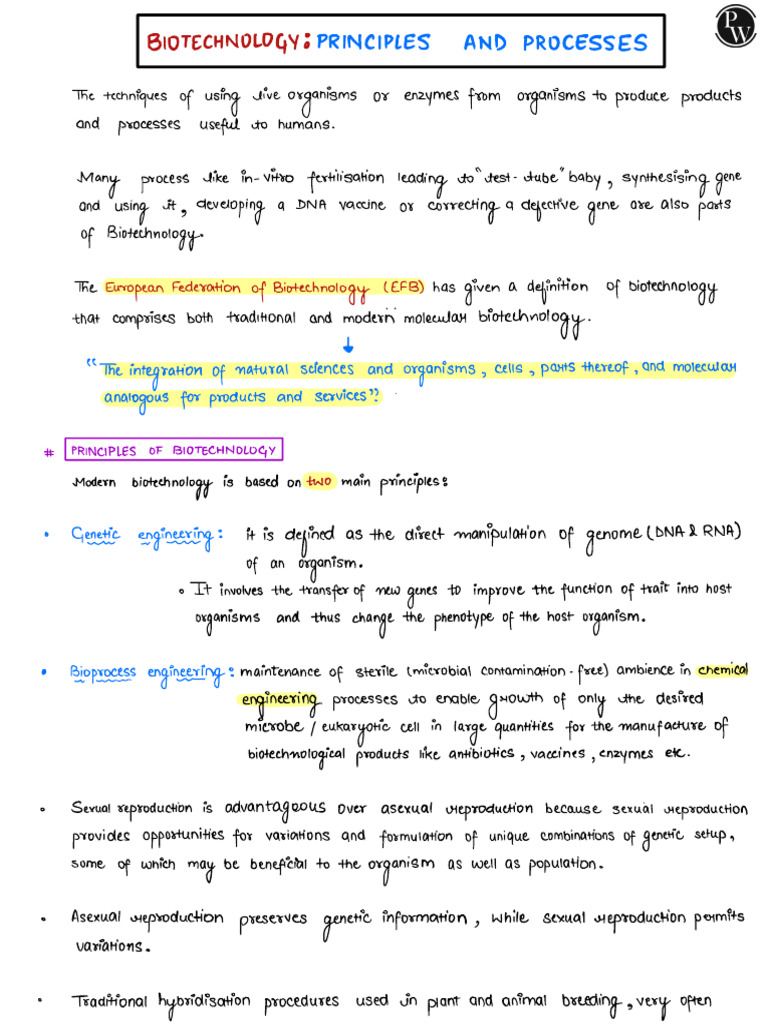 BIOTECHNOLOGY: PRINCIPLES AND PROCESSES
PW
The techniques of using live organisms or enzymes from organisms to produce products
and processes useful to humans.
Many process like in-vitro fertilisation leading to "test-tube" baby, synthesising gene
and using it, developing a DNA vaccine or correcting a defective gene are also parts
of Biotechnology.
The European Federation of Biotechnology (EFB) has given a definition of biotechnology
that comprises both traditional and modern molecular biotechnology.
"The integration of natural sciences and organisms, cells, parts thereof, and molecular
analogous for products and services".
# PRINCIPLES OF BIOTECHNOLOGY
Modern biotechnology is based on two main principles:
• Genetic engineering: it is defined as the direct manipulation of genome (DNA & RNA)
of an organism.
• It involves the transfer of new genes to improve the function of trait into host
organisms and thus change the phenotype of the host organism.
• Bioprocess engineering: maintenance of sterile (microbial contamination-free) ambience in chemical
engineering processes to enable growth of only the desired
microbe / eukaryotic cell in large quantities for the manufacture of
biotechnological products like antibiotics, vaccines, enzymes etc.
• Sexual reproduction is advantageous over asexual reproduction because sexual reproduction
provides opportunities for variations and formulation of unique combinations of genetic setup,
some of which may be beneficial to the organism as well as population.
• Asexual reproduction preserves genetic information, while sexual reproduction permits
variations.
• Traditional hybridisation procedures used in plant and animal breeding, very often